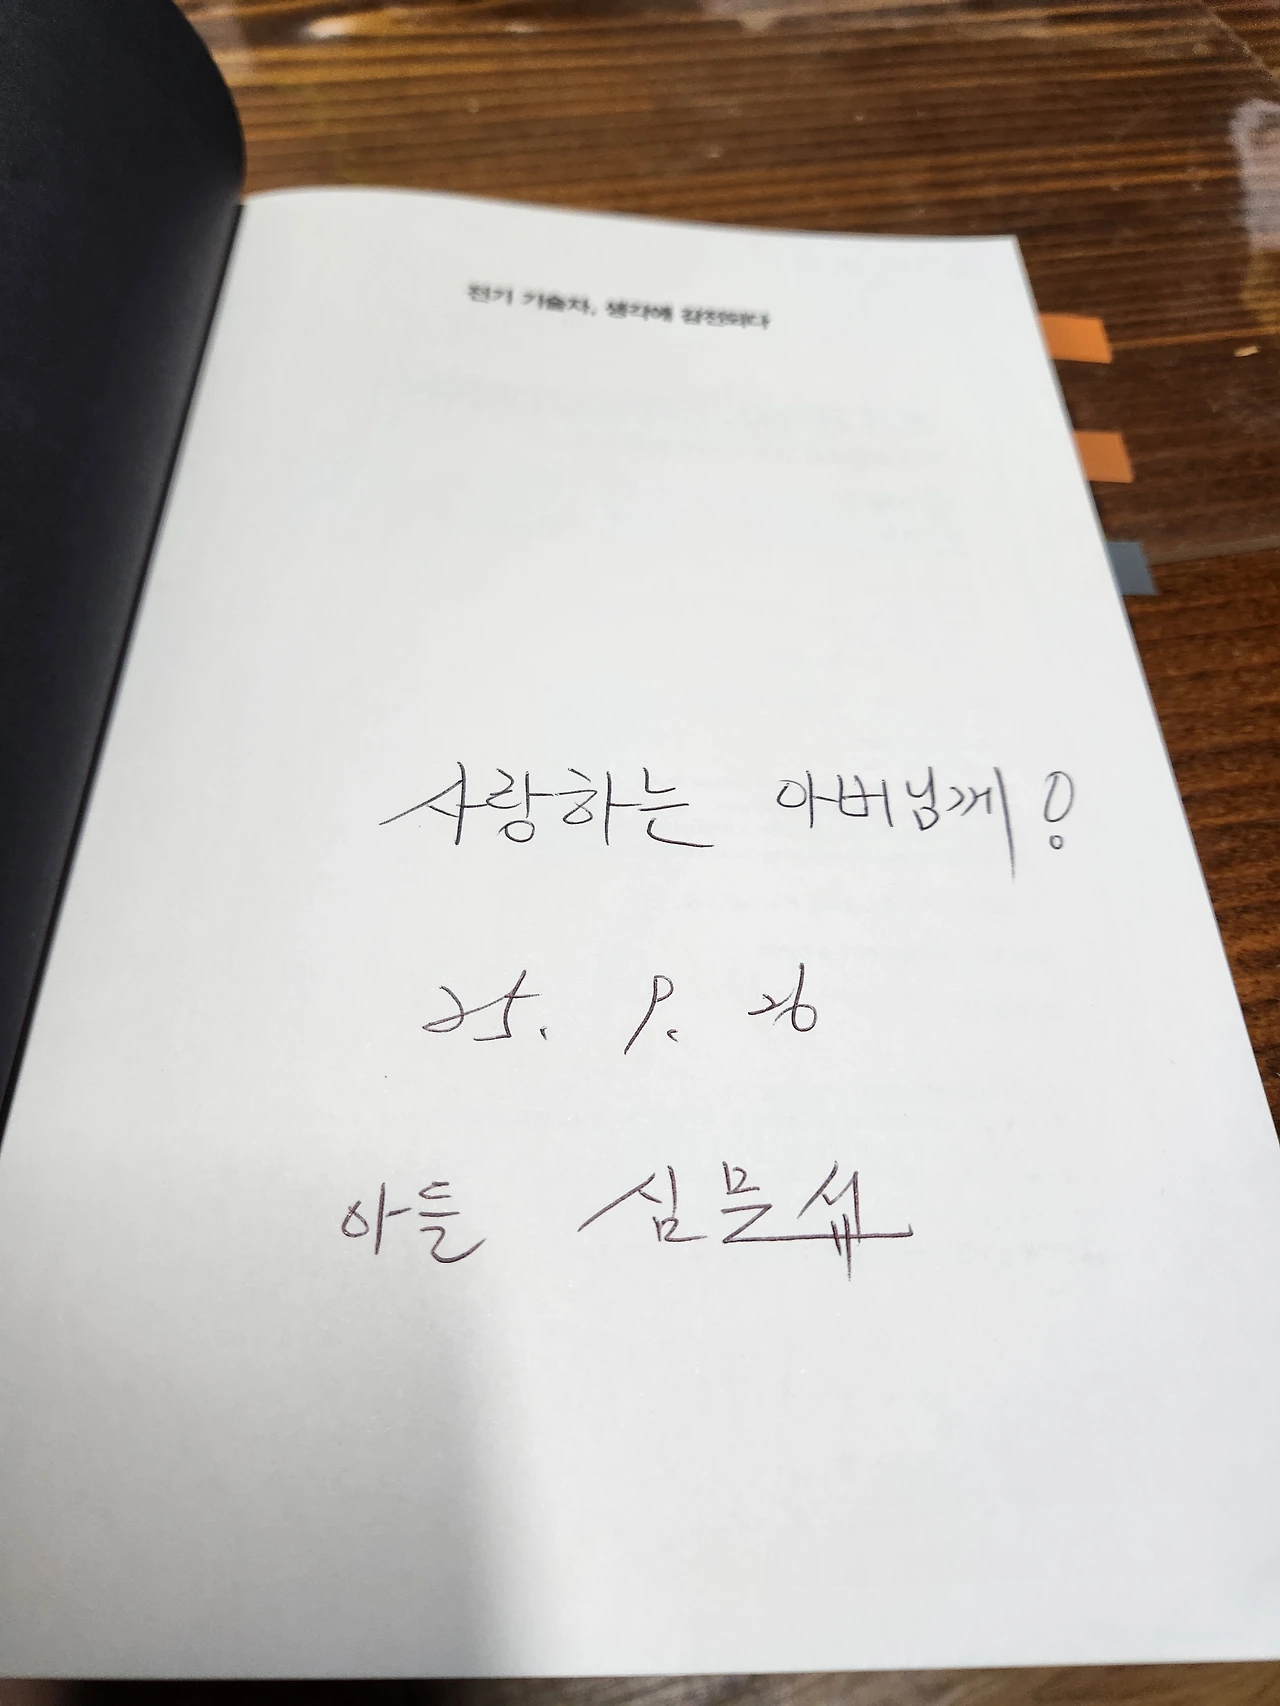 전기 기술자, 생각에 감전되다
사랑하는 아버님께!
25. 9. 26
아들 심문섭